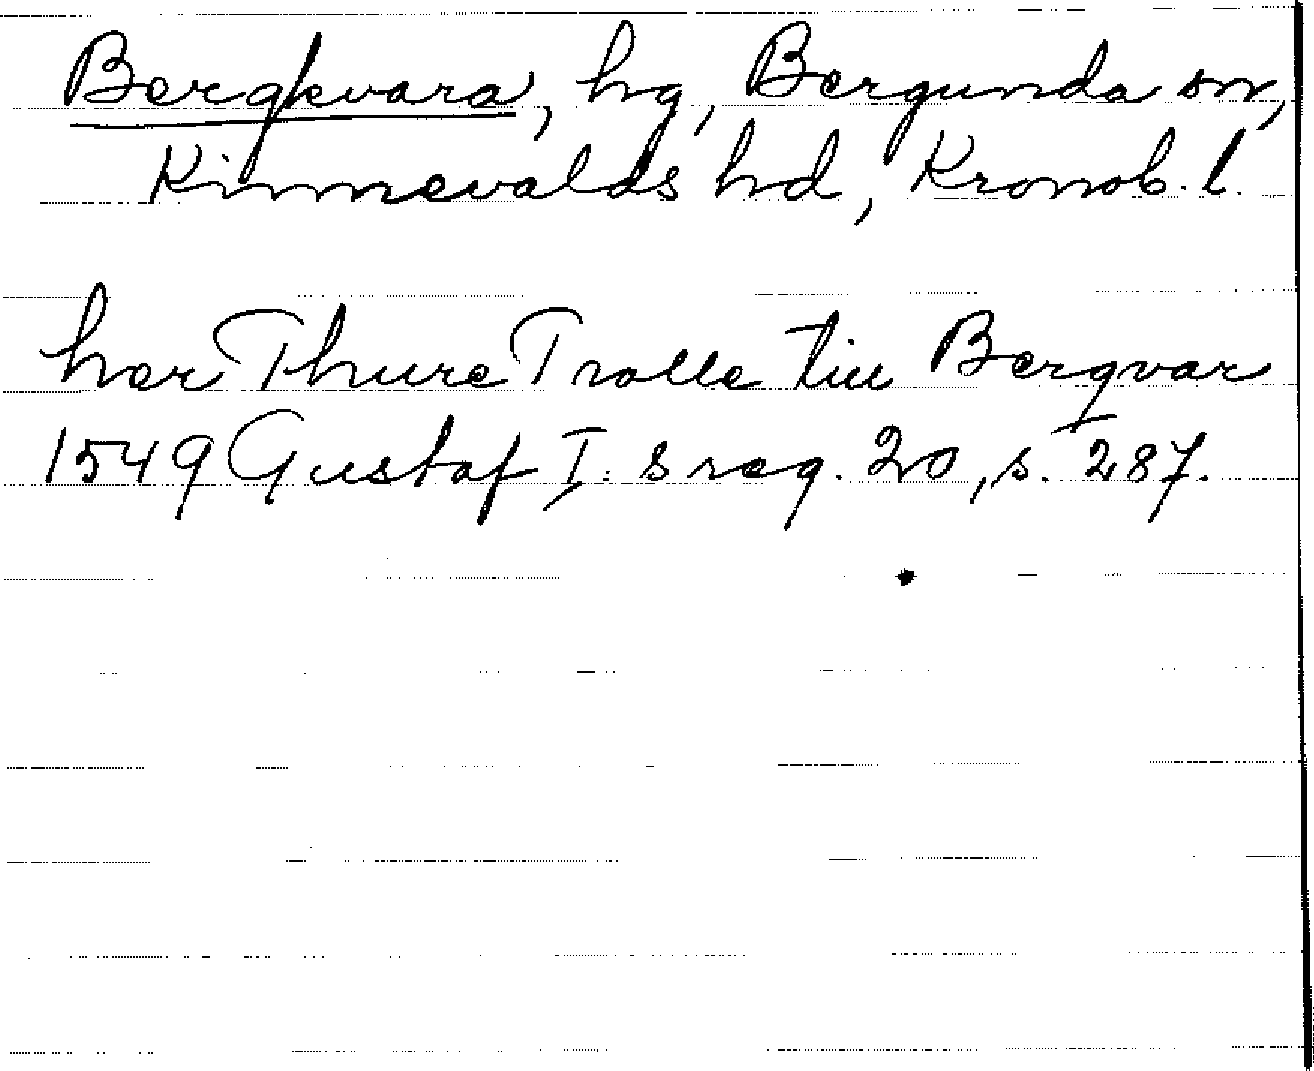 Bergkvara, hg, Bergunda sn,
Kinnevalds hd, Kronob. l.
her Thure Trolle till Bergvar
1549 Gustaf I:s reg. 20, s. 287.